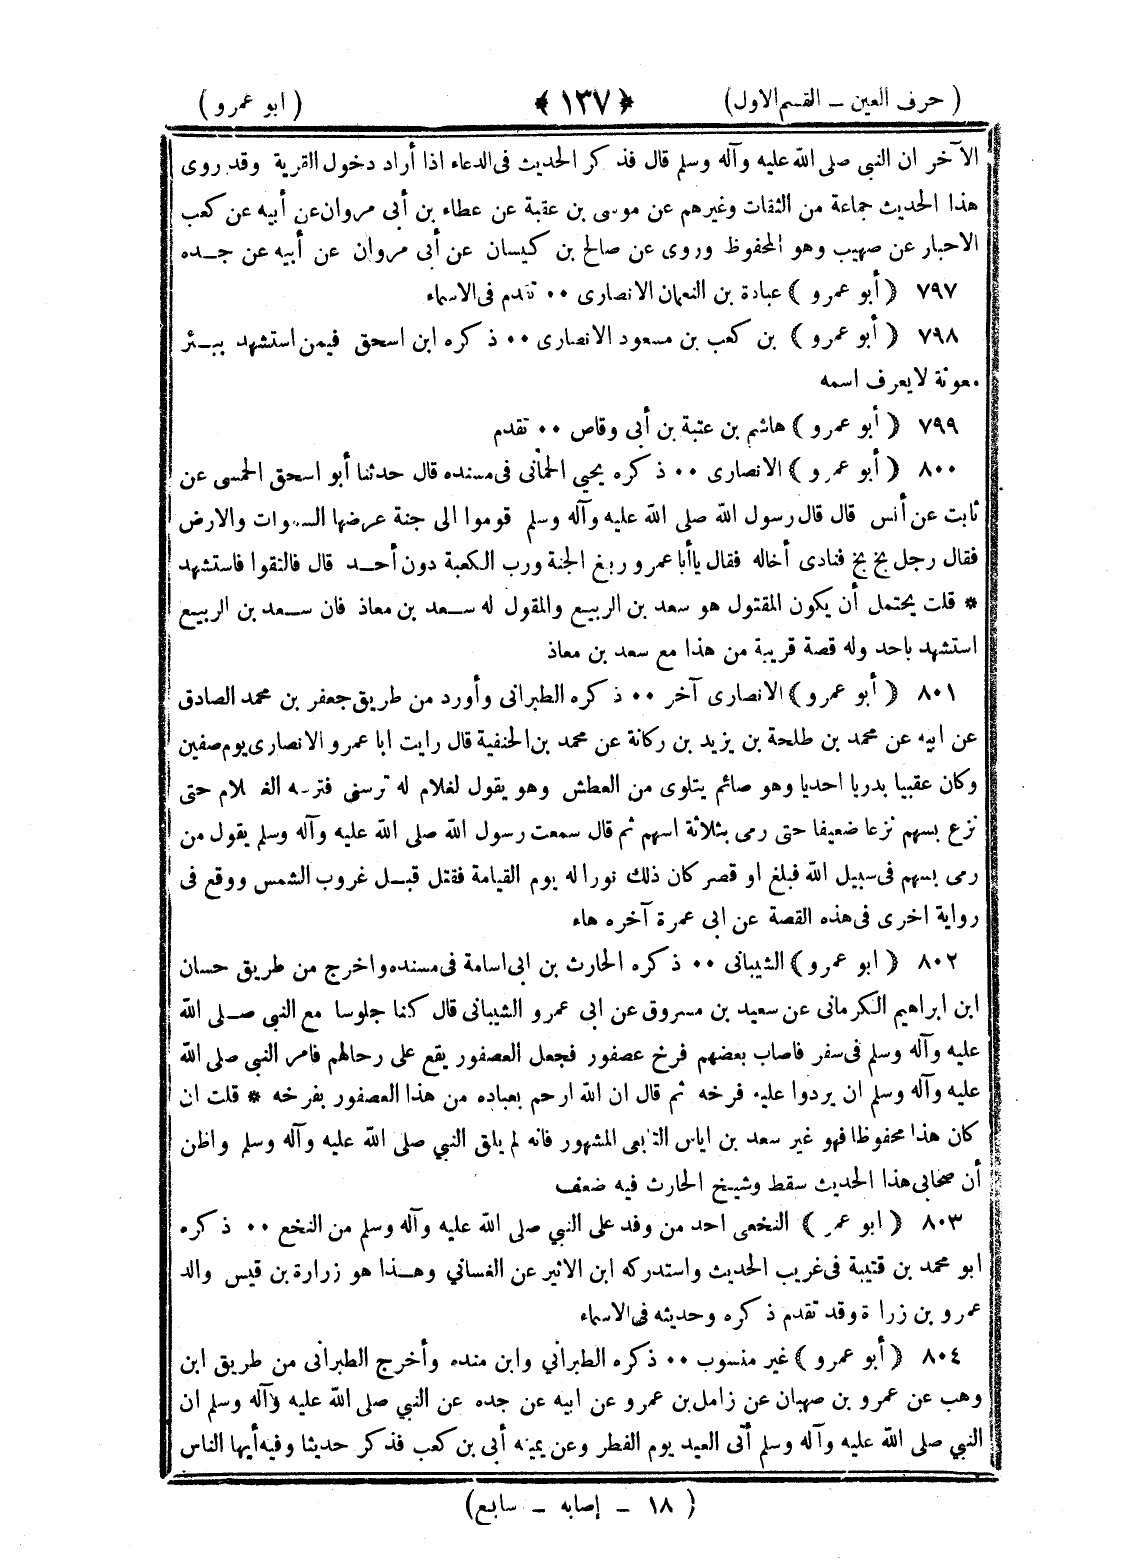 ( حرف العين – القسم الاول) ﴿ ١٣٧ ﴾ ( ابو عمرو )
الآخر ان النبي صلى الله عليه وآله وسلم قال فذكر الحديث فى الدعاء اذا أراد دخول القرية وقد روى
هذا الحديث جماعة من الثقات وغيرهم عن موسى بن عقبة عن عطاء بن أبي مروان عن أبيه عن كعب
الاحبار عن صهيب وهو المحفوظ وروى عن صالح بن كيسان عن أبي مروان عن أبيه عن جـده
٧٩٧ ﴿ أبو عمرو ﴾ عبادة بن النعمان الانصارى ٠٠ تقدم فى الاسماء
٧٩٨ ﴿ أبو عمرو ﴾ بن كعب بن مسعود الانصارى ٠٠ ذكره ابن اسحق فيمن استشهد ببـئر
معونة لا يعرف اسمه
٧٩٩ ﴿ أبو عمرو ﴾ هاشم بن عتبة بن أبى وقاص ٠٠ تقدم
٨٠٠ ﴿ أبو عمرو ﴾ الانصارى ٠٠ ذكره يحيى الحمانى فى مسنده قال حدثنا أبو اسحق الحمسى عن
ثابت عن أنس قال قال رسول الله صلى الله عليه وآله وسلم قوموا الى جنة عرضها السموات والارض
فقال رجل بخ بخ فنادى أخاله فقال ياأبا عمرو ربغ الجنة ورب الكعبة دون أحـد قال فالتقوا فاستشهد
* قلت يحتمل أن يكون المقتول هو سعد بن الربيع والمقول له سـعد بن معاذ فان سـعد بن الربيع
استشهد باحد وله قصة قريبة من هذا مع سعد بن معاذ
٨٠١ ﴿ أبو عمرو ﴾ الانصارى آخر ٠٠ ذكره الطبرانى وأورد من طريق جعفر بن محمد الصادق
عن ابيه عن محمد بن طلحة بن يزيد بن ركانة عن محمد بن الحنفية قال رايت ابا عمرو الانصارى يوم صفين
وكان عقبيا بدريا احديا وهو صائم يتلوى من العطش وهو يقول لغلام له ترسنى فترسه الغلام حتى
نزع بسهم نزعا ضعيفا حتى رمى بثلاثة اسهم ثم قال سمعت رسول الله صلى الله عليه وآله وسلم يقول من
رمى بسهم فى سبيل الله فبلغ او قصر كان ذلك نورا له يوم القيامة فقتل قبـل غروب الشمس ووقع فى
رواية اخرى فى هذه القصة عن ابى عمرة آخره هاء
٨٠٢ ﴿ ابو عمرو ﴾ الشيبانى ٠٠ ذكره الحارث بن ابى اسامة فى مسنده واخرج من طريق حسان
ابن ابراهيم الكرمانى عن سعيد بن مسروق عن ابى عمرو الشيبانى قال كنا جلوسا مع النبي صـلى الله
عليه وآله وسلم فى سفر فاصاب بعضهم فرخ عصفور فجعل العصفور يقع على رحالهم فامر النبي صلى الله
عليه وآله وسلم ان يردوا عليه فرخه ثم قال ان الله ارحم بعباده من هذا العصفور بفرخه * قلت ان
كان هذا محفوظا فهو غير سعد بن اياس التابعى المشهور فانه لم يلق النبي صلى الله عليه وآله وسلم واظن
أن صحابى هذا الحديث سقط وشيخ الحارث فيه ضعف
٨٠٣ ﴿ ابو عمر ﴾ النخعى احد من وفد على النبي صلى الله عليه وآله وسلم من النخع ٠٠ ذكره
ابو محمد بن قتيبة فى غريب الحديث واستدركه ابن الاثير عن الغساني وهـذا هو زرارة بن قيس والد
عمرو بن زرارة وقد تقدم ذكره وحديثه فى الاسماء
٨٠٤ ﴿ أبو عمرو ﴾ غير منسوب ٠٠ ذكره الطبراني وابن منده وأخرج الطبرانى من طريق ابن
وهب عن عمرو بن صهبان عن زامل بن عمرو عن ابيه عن جده عن النبي صلى الله عليه وآله وسلم ان
النبي صلى الله عليه وآله وسلم أتى العيد يوم الفطر وعن يمينه أبي بن كعب فذكر حديثا وفيه أيها الناس
( ١٨ – إصابه – سابع )